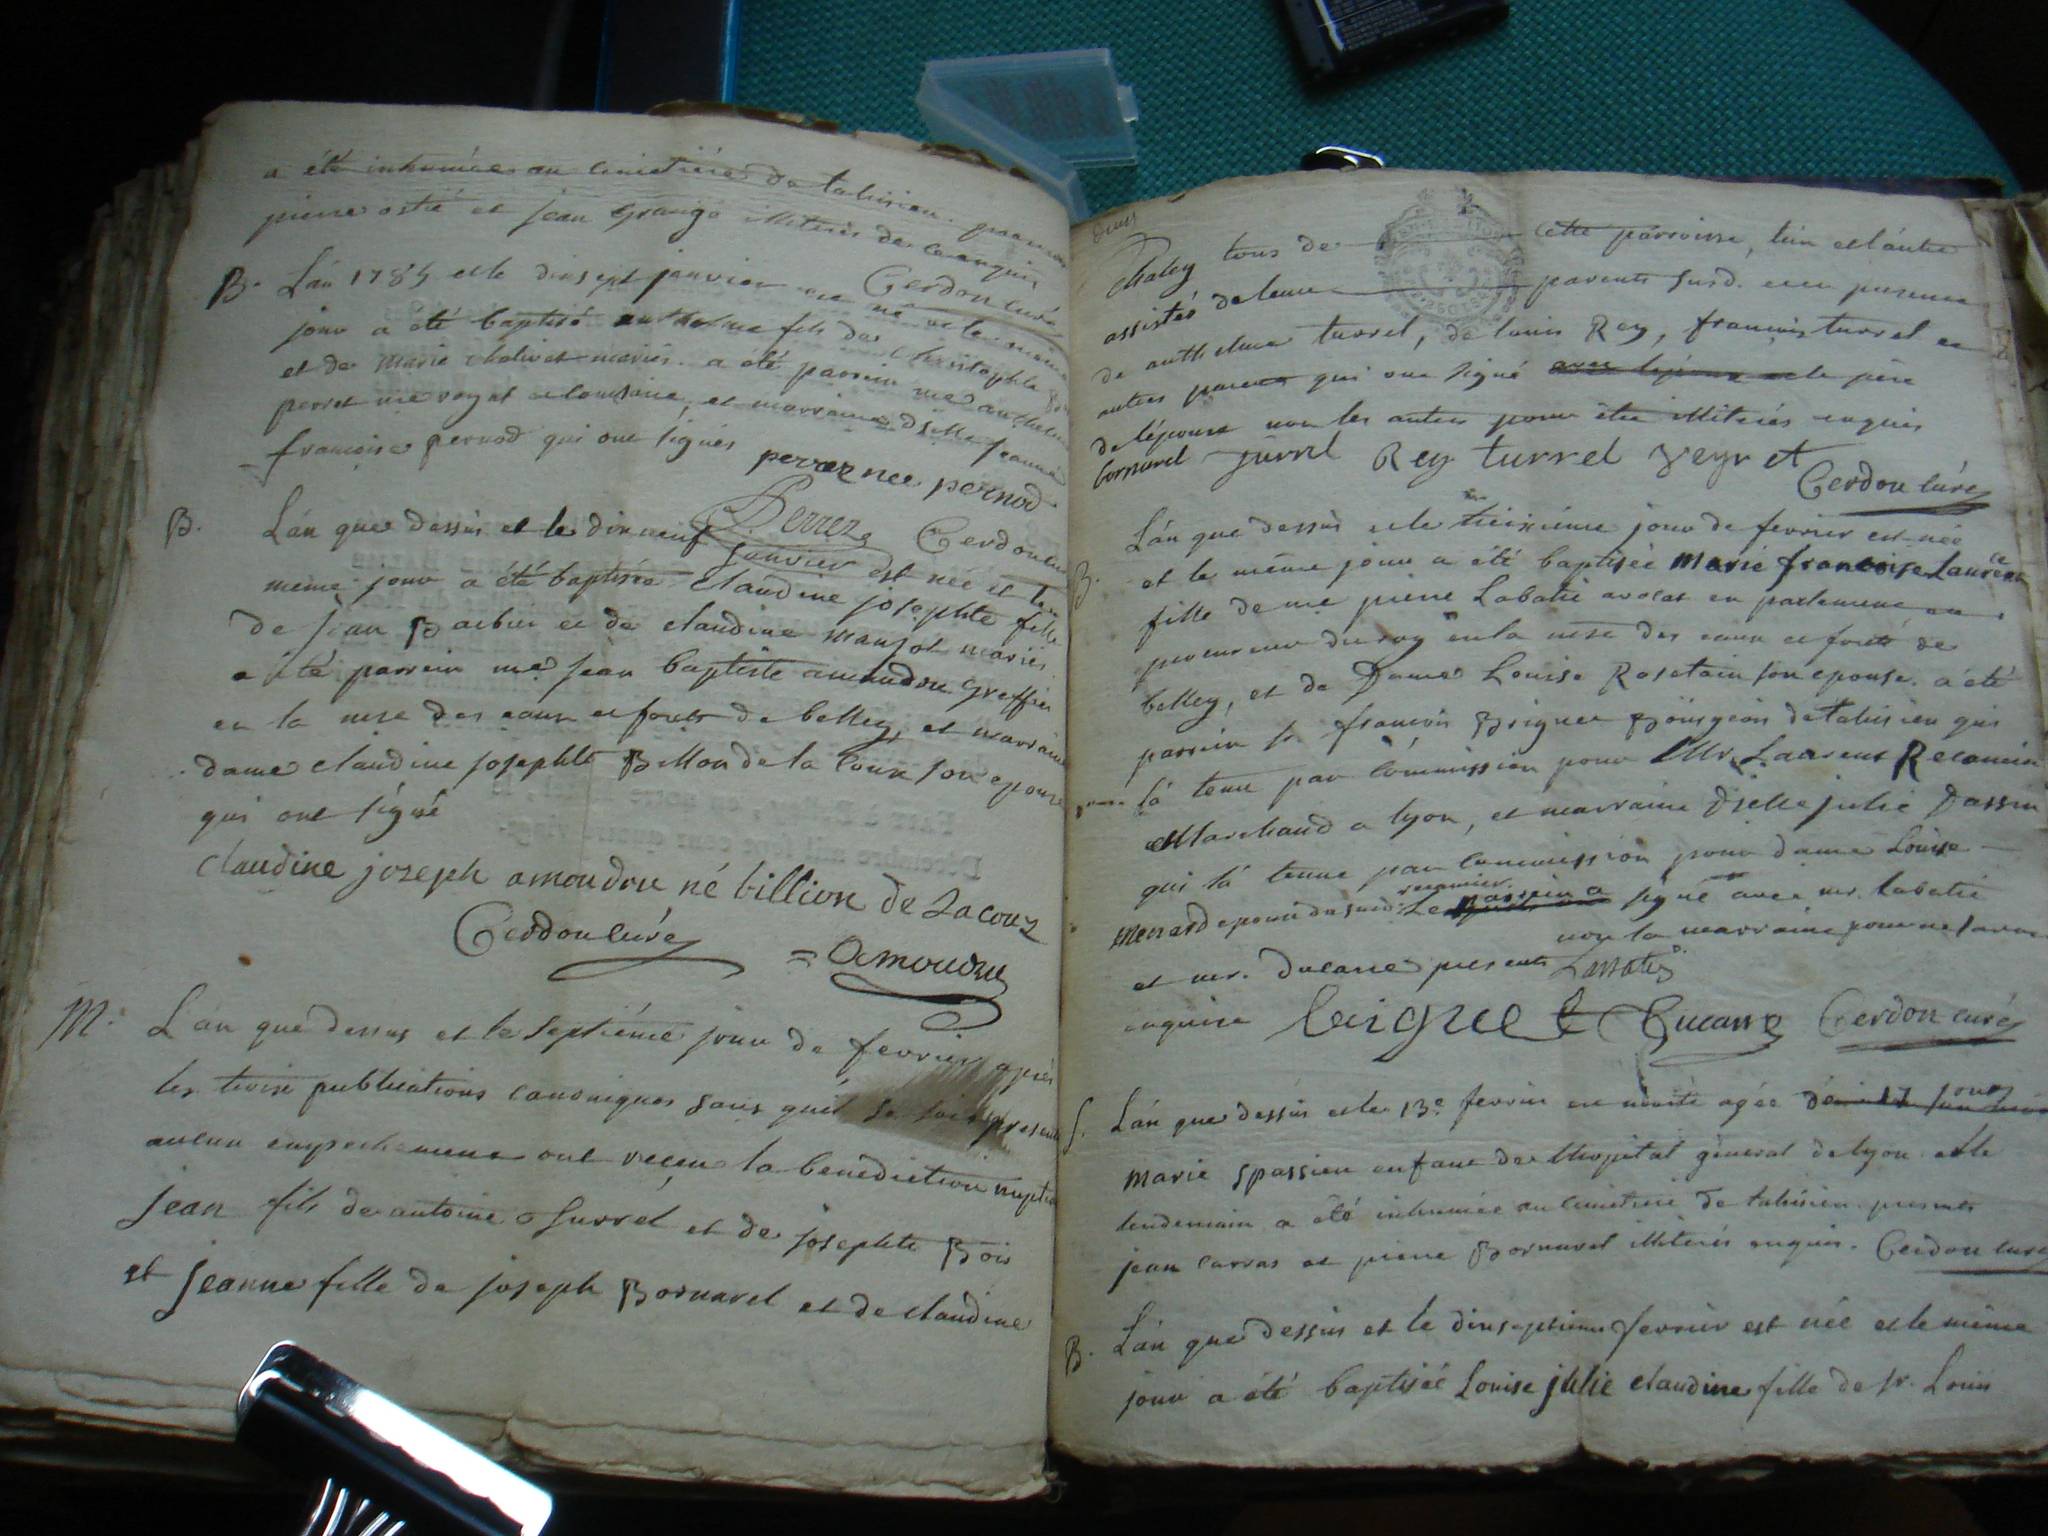 a été inhumée au cimetière de talisieu
pierre ostié et jean grangé illiterés de ce enquis
Cerdon curé
B. L'an 1785 et le dix sept janvier est né et le même
jour a été baptisé anthelme fils de Christophle
et de marie chalivet mariés. a été parrein me anthelme
perret me royal et marraine dselle jeanne
françoise pernod qui ont signés perrez nee pernod
Perrez Cerdon curé
B. L'an que dessus et le dix neuf janvier est née et le
meme jour a été baptisée claudine josephte fille
de jean Barbier et de claudine manjot mariés
a été parrein me jean baptiste amoudru greffier
en la mse des eaux et forets de belley, et marraine
dame claudine josephte Billion de la Cour son epouse
qui ont signé
claudine joseph amoudru né billion de Lacour
Cerdon curé = amoudru
M. L'an que dessus et le septième jour de fevrier après
les trois publications canoniques sans qu'il se soit présenté
aucun empechement ont reçeu la bénédiction nuptiale
jean fils de antoine turrel et de josephte Bois
et jeanne fille de joseph Bornarel et de claudine
deux
Chaley tous de cette parroisse, l'un et l'autre
assistés de leurs parents susd. et en presence
de anthelme turrel, de louis Rey, françois turrel et
autres parents qui ont signé avec l'épouse et le père
de l'épouse non les autres pour être illiterés enquis
bornarel turrel Rey turrel veyret
Cerdon curé
B. L'an que dessus et le treizième jour de fevrier est née
et le même jour a été baptisée marie françoise Laurence
fille de me pierre Labatie avocat en parlement
procureur du roy en la mse des eaux et forets de
belley, et de Dame Louise Rosetain son epouse. a été
parrein sr. françois Briguet Bourgeois de talisieu qui
l'a tenu par commission pour Mr. Laurent Recamier
Marchand a lyon, et marraine dselle julie Dassin
qui l'a tenue par commission pour dame Louise
menard epouse du susd. recamier Le parrein a signé avec mr. labatie
non la marraine pour ne savoir
et mr. ducarre présents Labatie
enquise briguet Ducarre Cerdon curé
S. L'an que dessus et le 13e fevrier est morte agée de 17 jours
marie spassien enfant de l'hopital général de lyon et le
lendemain a été inhumée au cimetiere de talisieu presents
jean carras et pierre Bornarel illiterés enquis. Cerdon curé
B. L'an que dessus et le dix septieme fevrier est née et le même
jour a été baptisée Louise julie claudine fille de sr. Louis